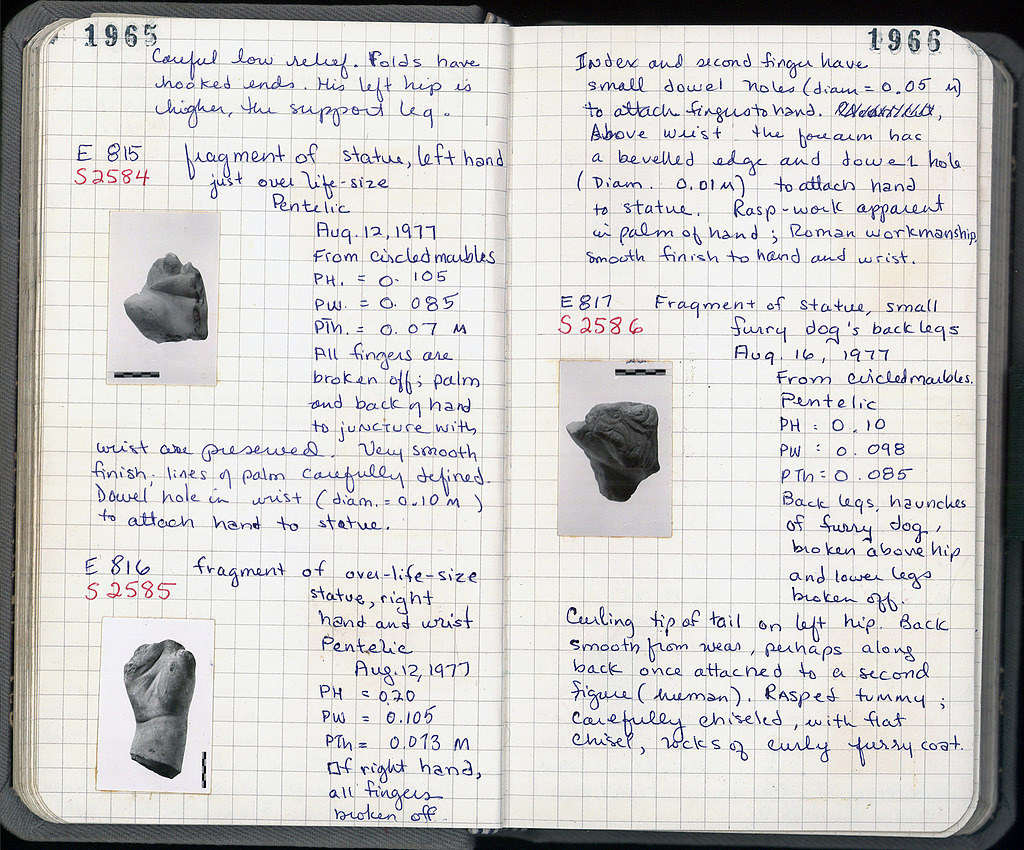 1965
Careful low relief. Folds have
hooked ends. His left hip is
higher, the support leg.
E 815 fragment of statue, left hand
S 2584 just over life-size
Pentelic
Aug. 12, 1977
From circled marbles
PH. = 0.105
PW. = 0.085
PTh. = 0.07 M
All fingers are
broken off; palm
and back of hand
to juncture with
wrist are preserved. Very smooth
finish, lines of palm carefully defined.
Dowel hole in wrist (diam. = 0.10 M)
to attach hand to statue.
E 816 fragment of over-life-size
S 2585 statue, right
hand and wrist
Pentelic
Aug. 12, 1977
PH = 0.20
PW = 0.105
PTh = 0.073 M
Of right hand,
all fingers
broken off.
1966
Index and second finger have
small dowel holes (diam = 0.05 M)
to attach fingers to hand.
Above wrist the forearm has
a bevelled edge and dowel hole
(Diam. 0.01 M) to attach hand
to statue. Rasp-work apparent
in palm of hand; Roman workmanship,
smooth finish to hand and wrist.
E 817 Fragment of statue, small
S 2586 furry dog's back legs
Aug. 16, 1977
From circled marbles.
Pentelic
PH = 0.10
PW = 0.098
PTh = 0.085
Back legs, haunches
of furry dog,
broken above hip
and lower legs
broken off.
Curling tip of tail on left hip. Back
smooth from wear, perhaps along
back once attached to a second
figure (human). Rasped tummy;
carefully chiseled, with flat
chisel, locks of curly furry coat.